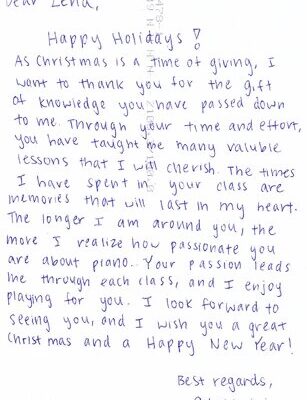 Dear Lena,
Happy Holidays!
As Christmas is a time of giving, I
want to thank you for the gift
of knowledge you have passed down
to me. Through your time and effort,
you have taught me many valuble
lessons that I will cherish. The times
I have spent in your class are
memories that will last in my heart.
The longer I am around you, the
more I realize how passionate you
are about piano. Your passion leads
me through each class, and I enjoy
playing for you. I look forward to
seeing you, and I wish you a great
Christmas and a Happy New Year!
Best regards,